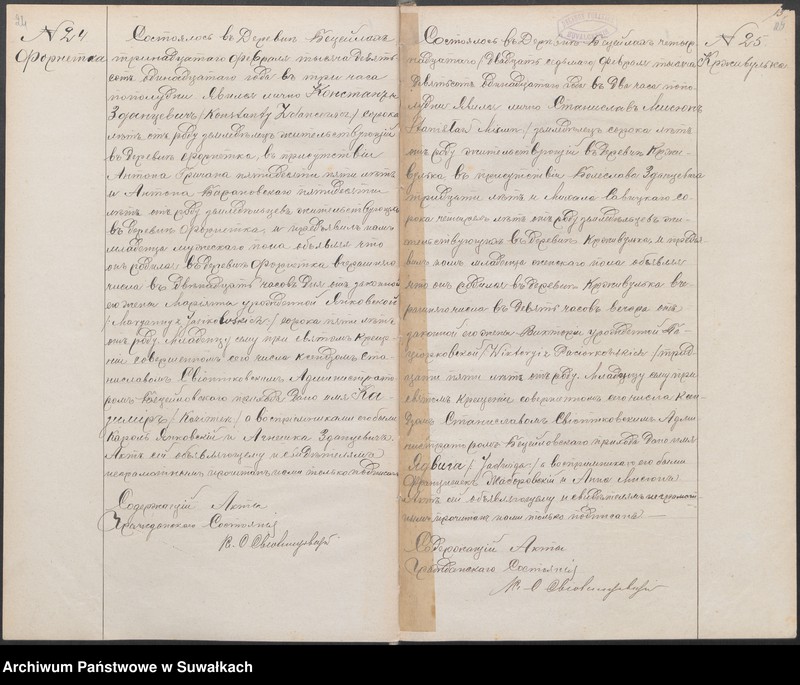 № 24
Форнетка
Состоялось въ Деревнѣ Бецейлахъ
тринадцатаго Февраля тысяча девять
сотъ одинадцатаго года въ три часа
пополудни. Явился лично Константы
Зданцевичъ /Konstanty Zdancewicz/ сорока
лѣтъ отъ роду земледѣлецъ жительствующій
въ деревнѣ Форнетка, въ присутствіи
Антона пятидесяти пяти лѣтъ
и Антона Барановскаго пятидесяти
лѣтъ отъ роду земледѣльцевъ жительствующихъ
въ деревнѣ Форнетка, и предъявилъ намъ
младенца мужескаго пола объявляя что
онъ родился въ деревнѣ Форнетка вчерашняго
числа въ двѣнадцать часовъ дня отъ законной
его жены Маріянны урожденной Янковской
/Maryanny z Jankowskich/ сорока пяти лѣтъ
отъ роду. Младенцу сему при святомъ Креще-
ніи совершенномъ сего числа Ксендзомъ Ста-
ниславомъ Администрато-
ромъ Бецейловскаго прихода дано имя Ка-
зимиръ а воспріемниками его были
Кароль Янковскій и Агнешка Зданцевичъ.
Актъ сей объявляющему и свидѣтелямъ
неграмотнымъ прочитанъ нами только подписанъ
Содержащій Акты
Гражданскаго Состоянія
№ 25
Состоялось въ Деревнѣ Бецейлахъ четыр-
надцатаго /двадцать седьмаго Февраля тысяча
девятьсотъ одинадцатаго года въ два часа попо-
лудни. Явился лично Станиславъ Мисюнъ
/Stanisław Misiun/ земледѣлецъ сорока лѣтъ
отъ роду жительствующій въ деревнѣ
въ присутствіи Болеслава Зданцевича
тридцати лѣтъ и Савицкаго со-
рока четырехъ лѣтъ отъ роду земледѣльцевъ жи-
тельствующихъ въ деревнѣ и предъя-
вилъ намъ младенца женскаго пола объявляя
что онъ родился въ деревнѣ вче-
рашняго числа въ девять часовъ вечера отъ
законной его жены Викторіи урожденной
/Wiktoryi z / трид-
цати пяти лѣтъ отъ роду. Младенцу сему при
святомъ Крещеніи совершенномъ сего числа Ксен-
дзомъ Станиславомъ Адми-
нистраторомъ Бецейловскаго прихода дано имя
Ядвига /Jadwiga/ а воспріемниками его были
Францишекъ и Анна Мисюнъ
Актъ сей объявляющему и свидѣтелямъ неграмот-
нымъ прочитанъ нами только подписанъ
Содержащій Акты
Гражданскаго Состоянія
Archiwum Państwowe w Suwałkach